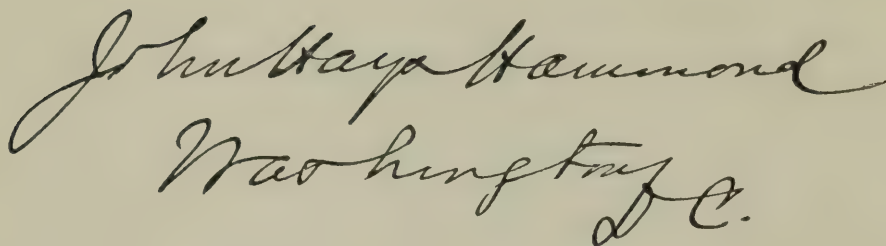 John Hays Hammond
Washington
D C.